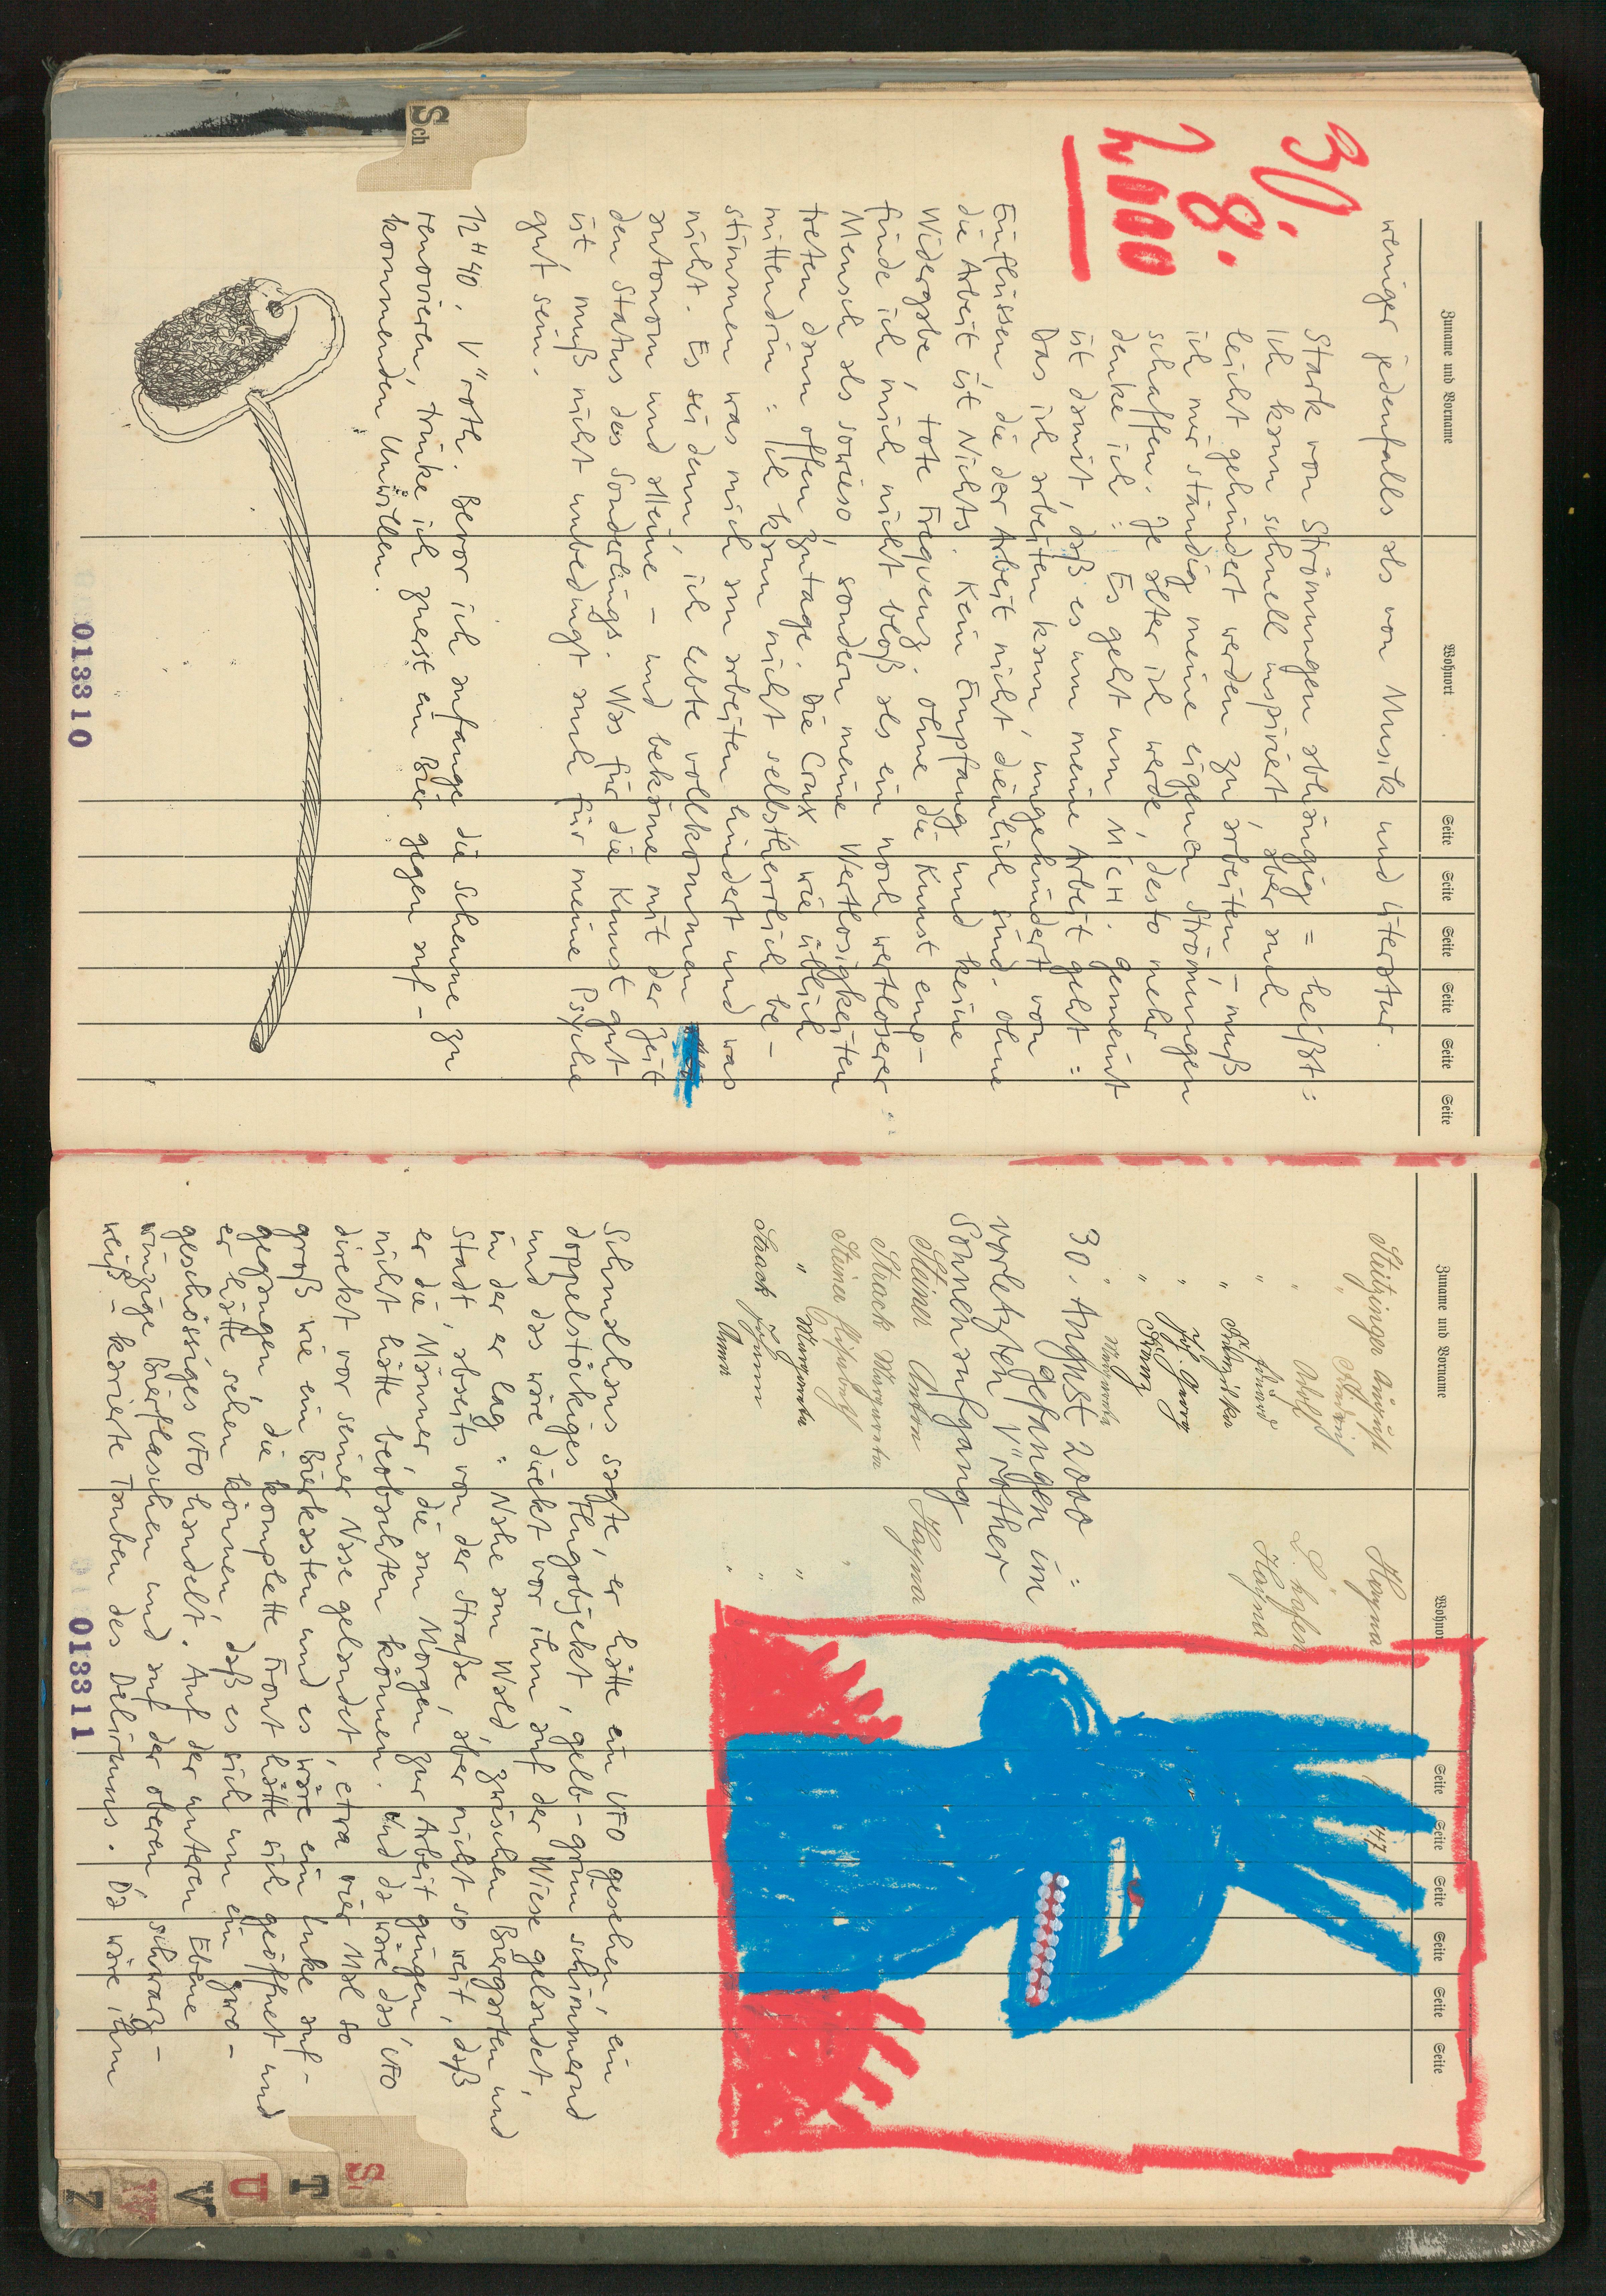 Sch
30.
8.
2000
Zuname und Vorname Wohnort Seite Seite Seite Seite Seite Seite
weniger jedenfalls als von Musik und Literatur.
Stark von Strömungen abhängig = heißt:
Ich kann schnell inspiriert, aber auch
leicht gehindert werden zu arbeiten – muß
ich mir ständig meine eigenen Strömungen
schaffen. Je älter ich werde, desto mehr
denke ich: Es geht um MICH. gemeint
ist damit, daß es um meine Arbeit geht:
Das ich arbeiten kann, ungehindert von
Einflüssen, die der Arbeit nicht dienlich sind. Ohne
die Arbeit ist Nichts. Kein Empfang und keine
Widergabe, tote Frequenz. Ohne die Kunst emp-
finde ich mich nicht bloß als ein noch wertloserer
Mensch als sowieso, sondern meine Wertlosigkeiten
treten dann offen zutage. Die Crux wie üblich
mittendrin: Ich kann nicht selbstherrlich be-
stimmen was mich am arbeiten hindert und was
nicht. Es sei denn, ich lebte vollkommen
autonom und alleine – und bekäme mit der Zeit
den Status des Sonderlings. Was für die Kunst gut
ist muß nicht unbedingt auch für meine Psyche
gut sein.
12 H 40. V"roth. Bevor ich anfange die Scheune zu
renovieren, trinke ich zuerst ein Bier gegen auf-
kommenden Unwillen.
013310
Zuname und Vorname Wohnor Seite Seite Seite Seite Seite Seite
Hayna 47
" Adolf L. hafen
" Hayna
"
"
" Franz
" Margareta
30. August 2000:
gefangen im
vorletzten V"rother
Sonnenaufgang
Steiner Anton Hayna
Strack Margareta
Steiner
" Margareta "
Strack Johann "
Anna "
Schmalhans sagte, er hätte ein UFO gesehen, ein
doppelstöckiges Flugobjekt, gelb-grün schimmernd
und das wäre direkt vor ihm auf der Wiese gelandet,
in der er lag: Nahe am Wald, zwischen Biergarten und
Stadt, abseits von der Straße, aber nicht so weit, daß
er die Männer, die am Morgen zur Arbeit gingen
nicht hätte beobachten können. Und da wäre das UFO
direkt vor seiner Nase gelandet, etwa vier Mal so
groß wie ein Bierkasten und es wäre ein Luke auf-
gegangen, die komplette Front hätte sich geöffnet und
er hätte sehen können, daß es sich um ein zwo-
geschössiges UFO handelt. Auf der unteren Ebene
winzige Bierflaschen und auf der oberen, schwarz-
weiß-karierte Tauben des Deliriums. Da wäre ihm
013311
S
T
U
V
Z